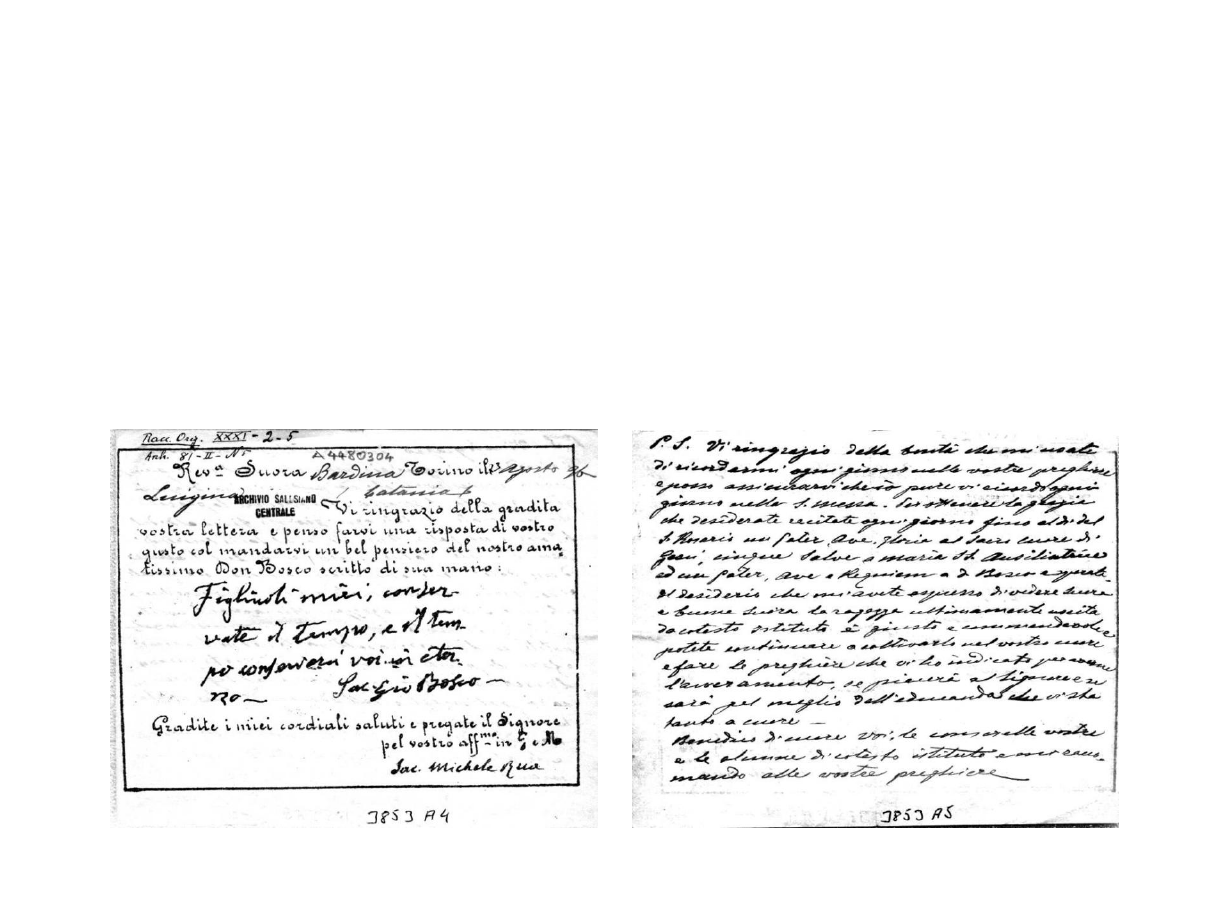 Racc. Org. XXXI - 2 - 5
Arch. 81 - II - N 5
A4480304
Rev.a Suora Bardina Torino il Agosto 96
Luigina Catania
ARCHIVIO SALESIANO
CENTRALE
Vi ringrazio della gradita
vostra lettera e penso farvi una risposta di vostro
gusto col mandarvi un bel pensiero del nostro ama-
tissimo Don Bosco scritto di sua mano:
Figliuoli miei, conser-
vate il tempo, e il tem-
po conserverà voi in eter-
no —
Sac Gio Bosco —
Gradite i miei cordiali saluti e pregate il Signore
pel vostro aff.mo in G. e M
Sac. Michele Rua
3853 A4
P. S. Vi ringrazio della bontà che mi usate
di ricordarmi ogni giorno nelle vostre preghiere
e posso assicurarvi che io pure vi ricordo ogni
giorno nella S. messa. Per ottenere la grazia
che desiderate recitate ogni giorno fino al dì del
S. Rosario un Pater, Ave, Gloria al Sacro Cuore di
Gesù, cinque Salve a Maria SS. Ausiliatrice
ed un Pater, Ave e Requiem a D. Bosco e sperate.
Il desiderio che mi avete espresso di vedere
e buone suora le ragazze ultimamente uscite
da cotesto istituto è giusto e commendevole e
potete continuare a coltivarlo nel vostro cuore
e fare le preghiere che vi ho indicato per
l'avveramento, se piacerà al Signore e se
sarà pel meglio dell'educanda che vi sta
tanto a cuore —
Benedico di cuore voi, le consorelle vostre
e le alunne di cotesto istituto e mi racco-
mando alle vostre preghiere
3853 A5